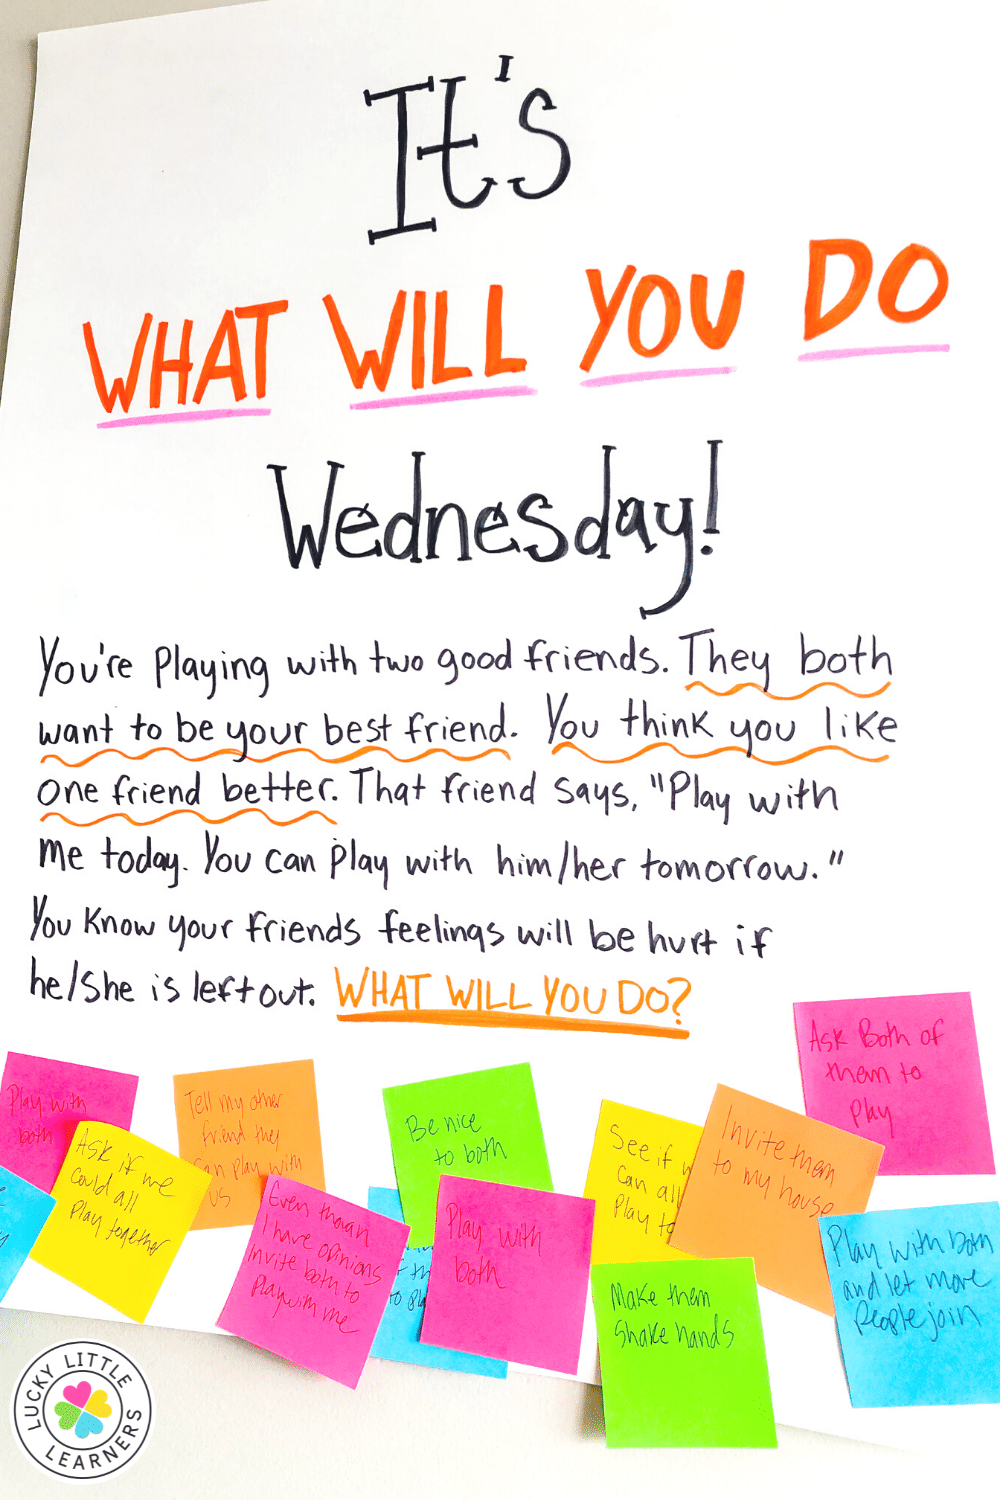 It's
WHAT WILL YOU DO
Wednesday!
You're Playing with two good friends. They both
want to be your best friend. You think you like
one friend better. That friend says, "Play with
me today. You can play with him/her tomorrow."
You know your friends feelings will be hurt if
he/she is left out. WHAT WILL YOU DO?
Ask Both of
them to
play
Play with
both
Ask if we
could all
Play together
Tell my other
friend they
can play with
us
Even thoan
I have opinions
invite both to
Play with me
Be nice
to both
Play with
both
See if
Can all
Play to
Invite them
to my house
Make them
Shake hands
Play with both
and let more
People join
LUCKY LITTLE
LEARNERS